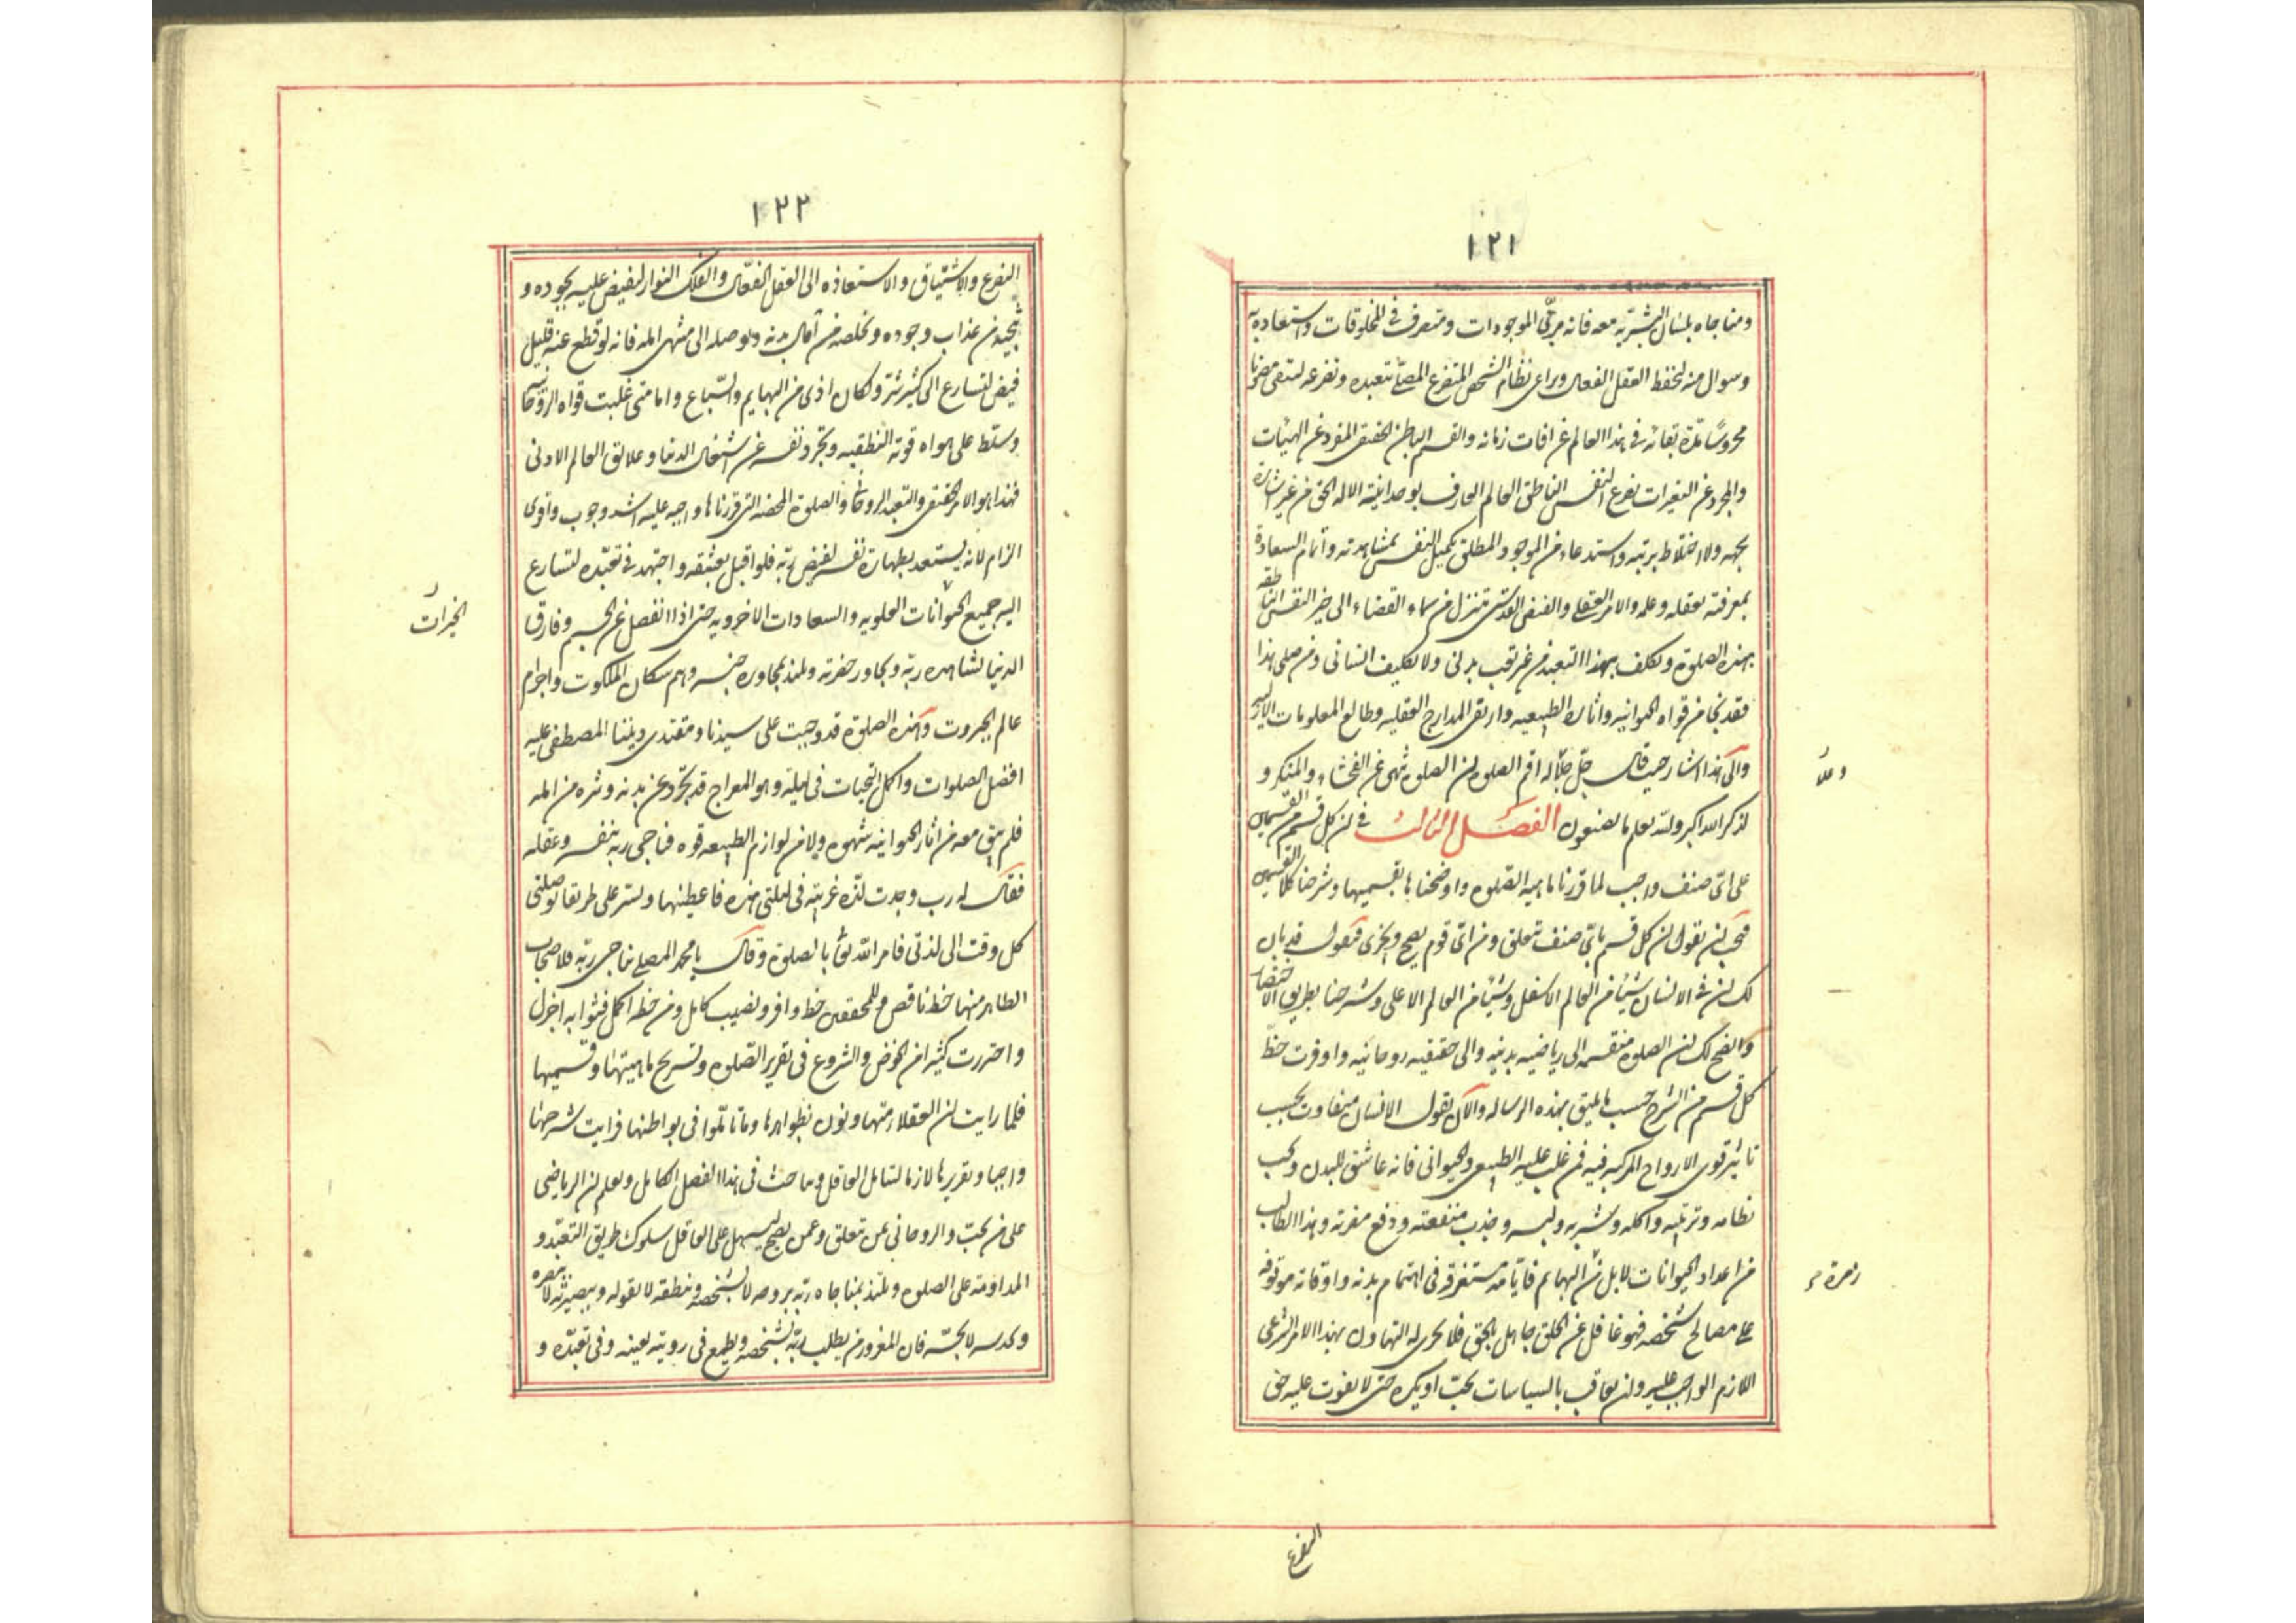 ١٢١
ومناجاه بلسان البشرية معه فانه مربّى الموجودات ومتصرف فى المخلوقات واستعاذه به
وسوال منه لحفظ العقل الفعال ويراعى نظام الشخص المتضرع المصلّى بتعبده وتضرعه ليبقى مصونا
محروسًا مدّة بقائه فى هذا العالم عن افات زمانه والقسم الباطن الحقيقى المفرد عن الهيئات
والمجرد عن التغيرات تضرع النفس الناطق العالم العارف بوحدانية الاله الحق من غير اشارة
بجهه ولا اختلاط برتبه واستدعاء من الموجود المطلق تكميل النفس بمشاهدته واتمام السعادة
بمعرفته بعقله وعلمه والامر العقلى والفيض القدسى تتنزل من سماء القضاء الى حيز النفس الناطقه
بهذه الصلوة وتكلف بهذا التعبد من غير تعب بدنى ولا تكليف انسانى ومن صلى هذا
فقد نجا من قواه الحيوانيه واثاره الطبيعيه وارتقى المدارج العقليه وطالع المعلومات الازليه
والى هذا اشار حيث قال جل جلاله اقم الصلوة ان الصلوة تنهى عن الفحشاء والمنكر و
وعلا
لذكر الله اكبر والله يعلم ما تصنعون الفصل الثالث فى ان كل قسم من القسمين
على اى صنف واجب لما قررنا ماهيه الصلوة واوضحنا ها بقسميها وشرحنا كلا القسمين
فيجب ان نقول ان كل قسم باى صنف تتعلق ومن اى قوم يصح ويجزى فنقول قد بان
لك ان فى الانسان شيئا من العالم الاسفل وشيئا من العالم الاعلى وشرحنا بطريق الاختصار
واتضح لك ان الصلوة منقسمه الى رياضيه بدنيه والى حقيقيه روحانيه واوفرت حظّ
كل قسم من الشرح حسب ما يليق بهذه الرساله والآن نقول الانسان متفاوت بحسب
تاثير قوى الارواح المركبه فيه فمن غلب عليه الطبيعى والحيوانى فانه عاشق للبدن ويحب
نظامه وتربيته واكله وشربه ولبسه وجذب منفعته ودفع مضرته وهذا الطالب
من اعداد الحيوانات لا بل من البهايم فايامه مستغرقه فى اهتمام بدنه واوقاته موقوفه
زمرة
على مصالح شخصه فهو غافل عن الخلق جاهل بالحق فلا يجرى له التهاون بهذا الامر الشرعى
اللازم الواجب عليه وان يعاقب بالسياسات يحب او يكره حتى لا يفوت عليه حق
التضرع
١٢٢
التضرع والاشتياق والاستعاذه الى العقل الفعّال والفلك الدوار ليفيض عليه بجوده و
ينجيه من عذاب وجوده ويخلصه من آمال بدنه ويوصله الى منتهى امله فانه لو قطع عنه قليل
فيض لتسارع الى كثير شر ولكان اذى من البهايم والسّباع واما متى غلبت قواه الروحانيه
وسلط على هواه قوته النطقيه وتجرد نفسه عن اشتغال الدنيا وعلايق العالم الادنى
فهذا هو الامر الحقيقى والتعبد الروحانى والصلوة المحضه التى قررناها واجبه عليه اشد وجوب واقوى
الزام لانه يستعد بطهارة نفسه لفيض ربّه فلو اقبل بعشقه واجتهد فى تعبّده لتسارع
اليه جميع الحيوانات العلويه والسعادات الاخرويه حتى اذا انفصل عن الجسم وفارق
الخيرات
الدنيا لشاهده ربّه ويجاور حضرته ويلتذ بمجاورة جنسه وهم سكان الملكوت واجرام
عالم الجبروت وهذه الصلوة قد وجبت على سيدنا ومقتدى ديننا المصطفى عليه
افضل الصلوات واكمل التحيات فى ليلة وهو المعراج قد تجرّد عن بدنه ونزه من امله
فلم يبق معه من اثار الحيوانيه شهوه ولا من لوازم الطبيعه قوه فناجى ربه بنفسه وعقله
فقال له رب وجدت لذّه غريبه فى ليلتى هذه فاعطنيها ويسّر على طريقا توصلنى
كل وقت الى لذتى فامر الله تعالى بالصلوة وقال يا محمد المصلى يناجى ربّه فلاصحاب
الظاهر منها حظ ناقص وللمحققين حظ وافر ونصيب كامل ومن حظه اكمل فثوابه اجزل
واحترزت كثيرا من الخوض والشروع فى تقرير الصّلوة وتشريح ماهيتها وقسميها
فلما رايت ان العقلاء متهاونون بظواهرها وما تاملّوا فى بواطنها فرايت شرحها
واجبا وتقريرها لازما ليتامل العاقل ويباحث فى هذا الفصل الكامل ويعلم ان الرياضى
على من يجب والروحانى بمن تتعلق وعمن يصح ليسهل على العاقل سلوك طريق التعبّد و
المداومة على الصلوة ويلتذ بمناجاه ربّه بروحه لا بشخصه ونطقه لا بقوله وببصيرته لا ببصره
وبحدسه لا بحسّه فان المغرور من يطلب ربّه بشخصه ويطمع فى رويته بعينه وفى تعبّده و